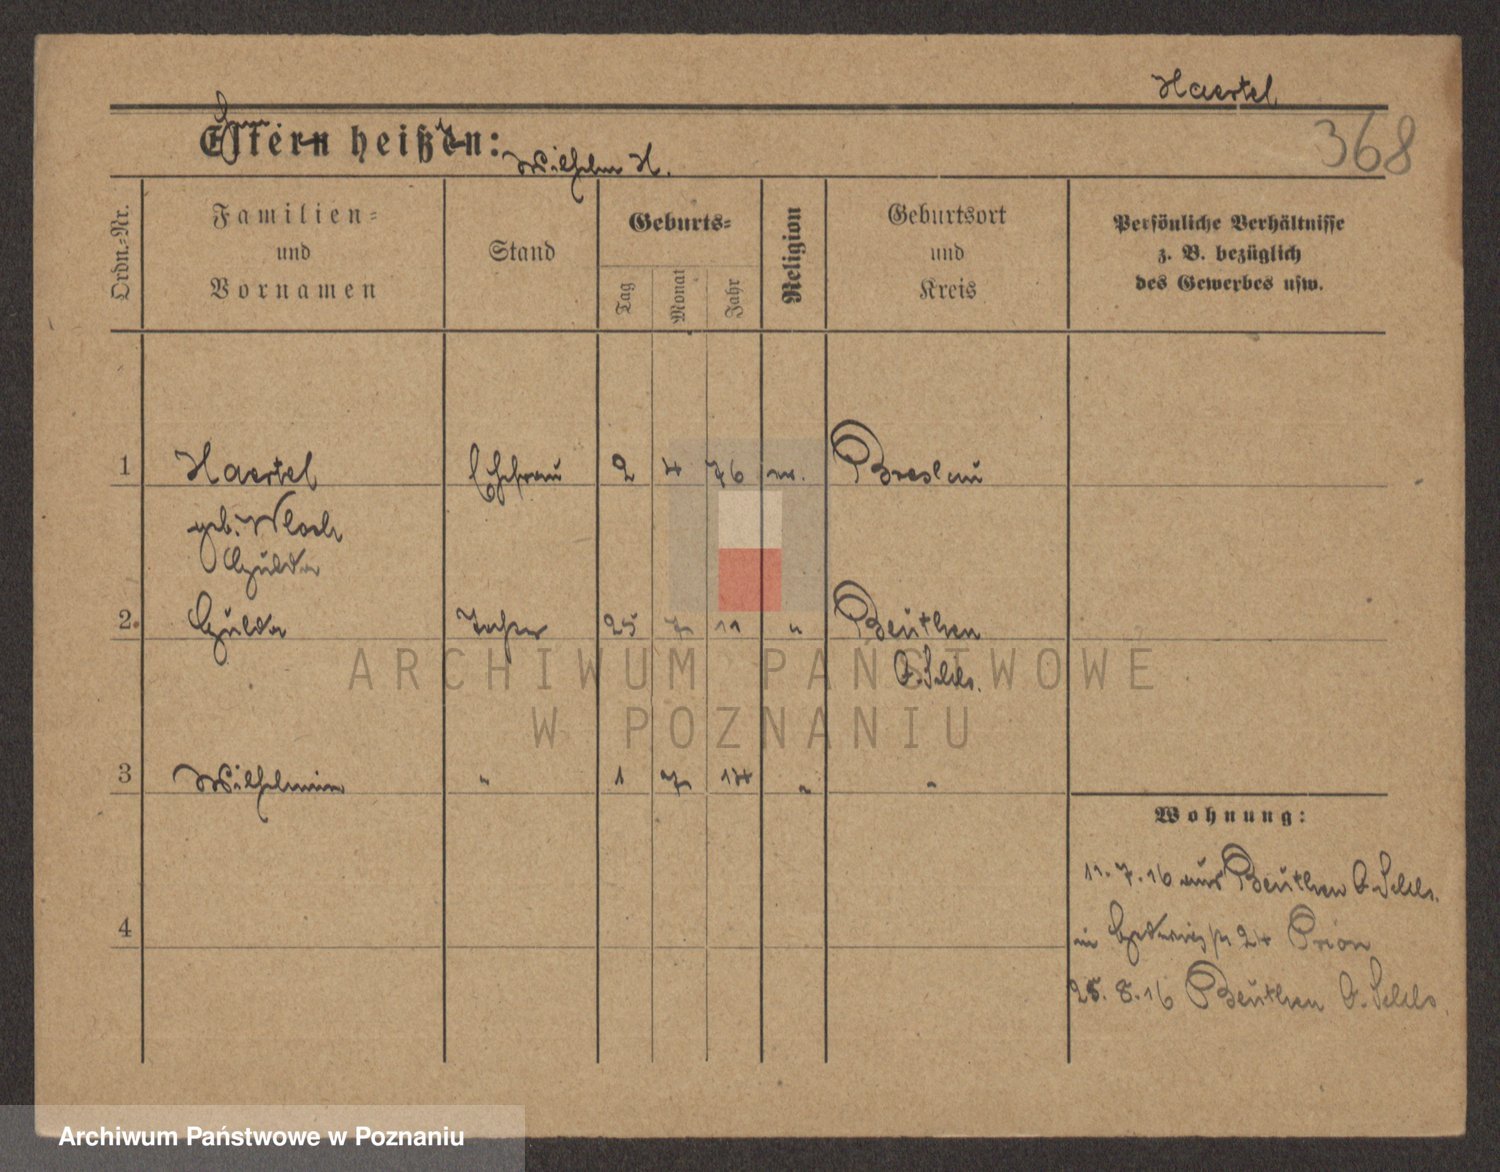 Haertel
368
Eltern heißen:
Wilhelm H.
Ordn.-Nr.
Familien-
und
Vornamen
Stand
Geburts-
Tag
Monat
Jahr
Religion
Geburtsort
und
Kreis
Persönliche Verhältnisse
z. B. bezüglich
des Gewerbes usw.
1 Haertel Ehefrau 2 4 76 Breslau
geb. Wloch
Hulda
2. Hulda Tochter 25 7 11 " Beuthen
O. Schls.
3 Wilhelmine " 1 7 14 " "
4
Wohnung:
11.7.16 aus Beuthen O. Schls.
24 Prion
25.8.16 Beuthen O. Schls
ARCHIWUM PAŃSTWOWE
W POZNANIU
Archiwum Państwowe w Poznaniu